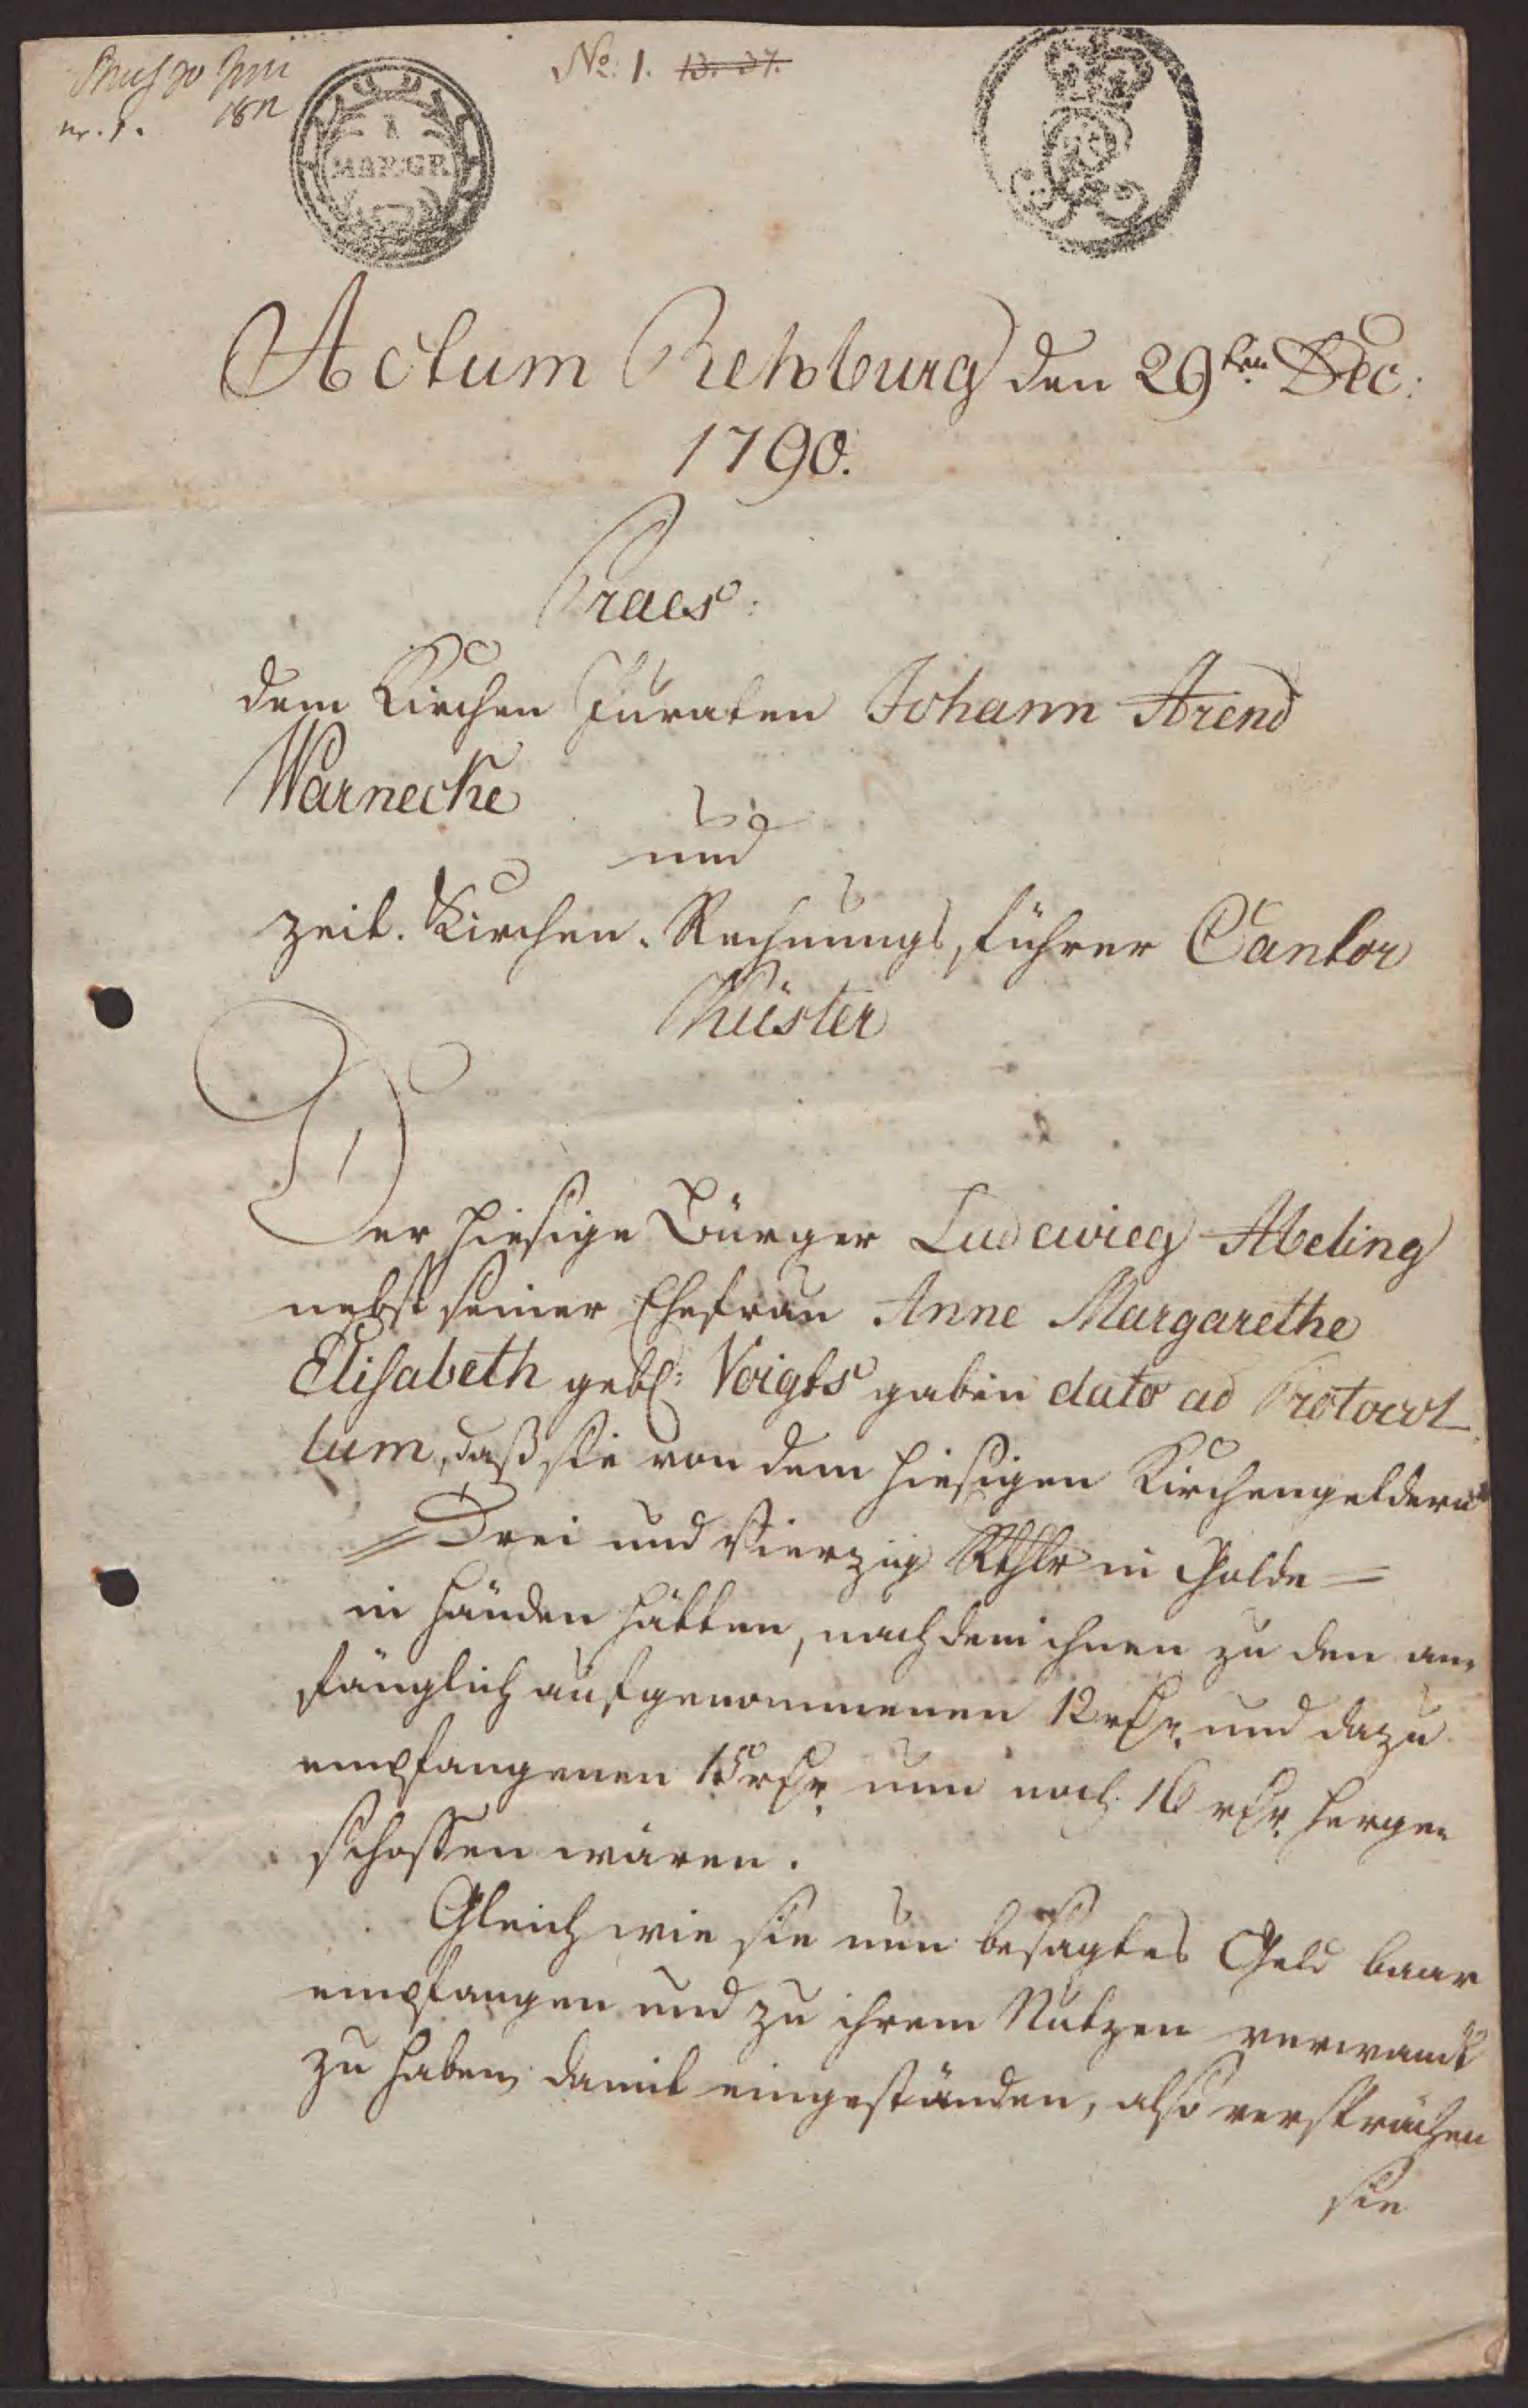 No: 1. 13. 37.
nr. 1. 1811
1
MAR:GR
Actum Rehburg den 29ten Dec:
1790.
Praes:
dem Kirchen Juraten Johann Arend
Warnecke
und
zeit. Kirchen-Rechnungsführer Cantor
Küster
Der hiesige Bürger Ludewieg Abeling
nebst seiner Ehefrau Anne Margarethe
Elisabeth geb: Voigts gaben dato ad Protocol
lum, daß sie von dem hiesigen Kirchengeldern
= Drei und Vierzig Rthlr in Golde =
in Händen hätten, nachdem ihnen zu den an-
fänglich aufgenommenen 12 rthr. und dazu
empfangenen 15 rthr. nun noch 16 rthr. herge-
schossen wären.
Gleich wie sie nun besagtes Geld baar
empfangen und zu ihrem Nutzen verwandt
zu haben, damit eingeständen, also versprächen
sie